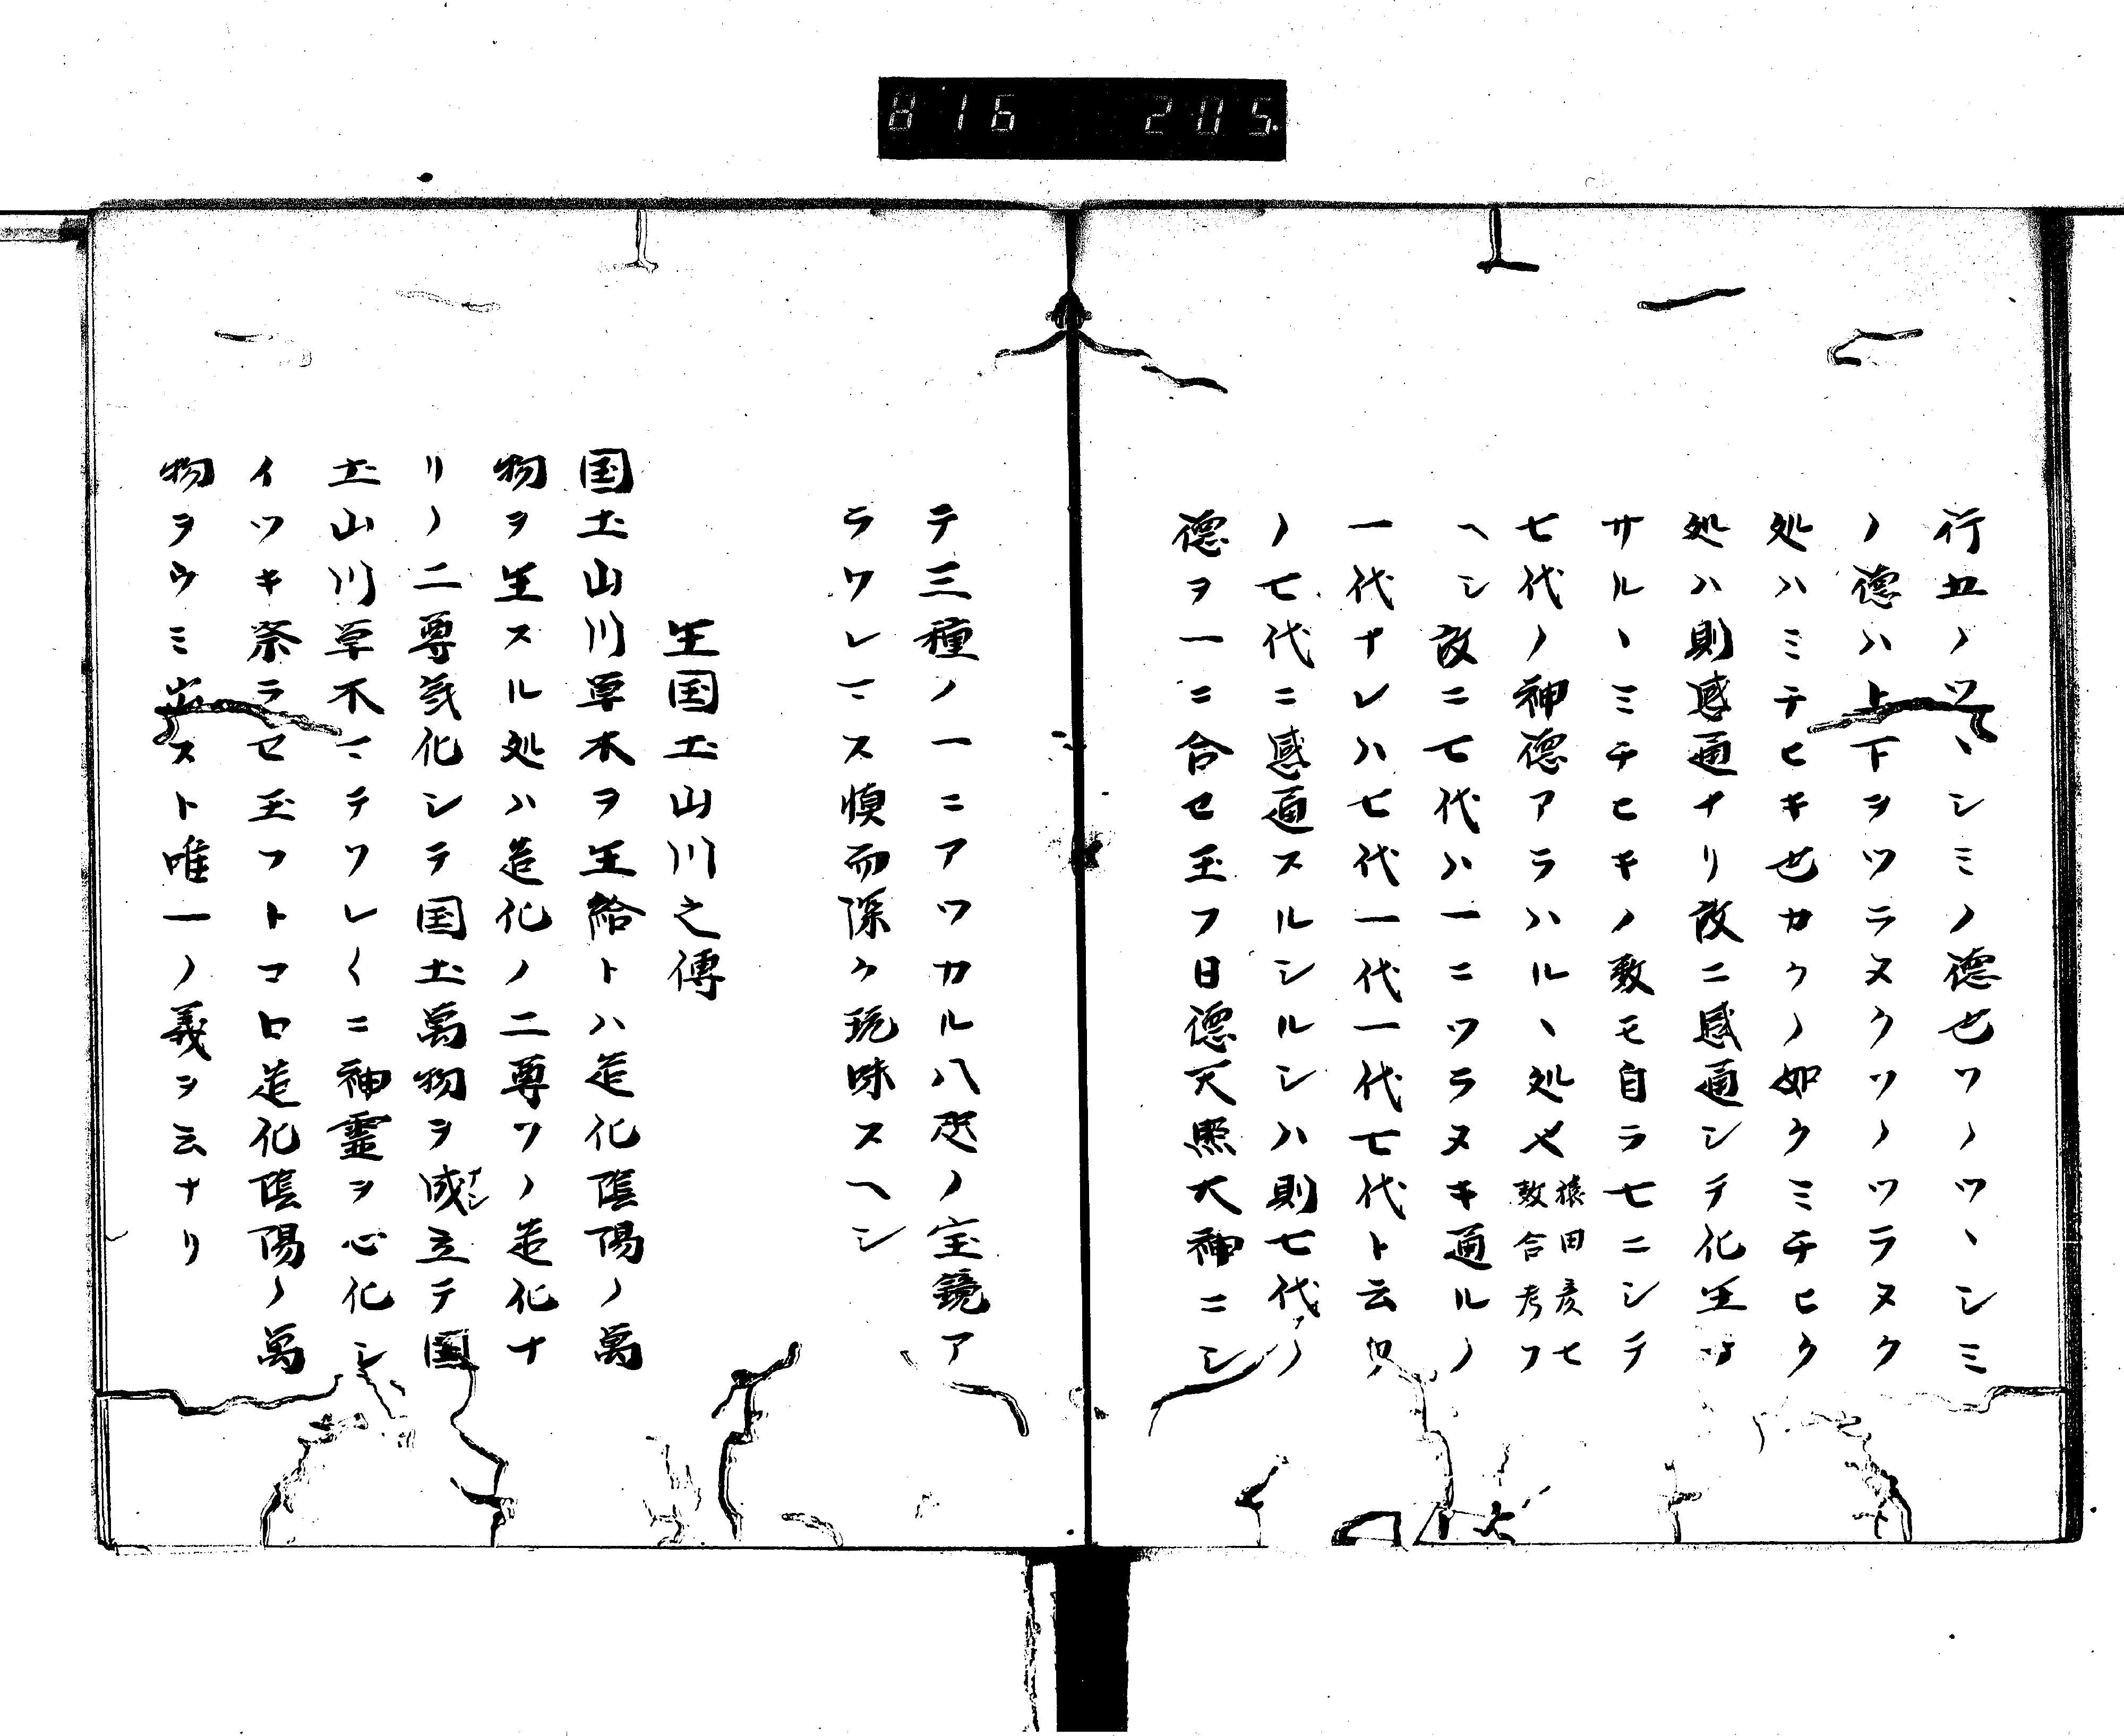 816 205.
行五ノツヽシミノ德也ツノツヽシミ
ノ德ハ上下ヲツラヌクソノツラヌク
処ハミチヒキ也カクノ如クミチヒク
処ハ則感通ナリ故ニ感通シテ化生
サルヽミチヒキノ数モ自ラ七ニシテ
七代ノ神德アラハルヽ処也猿田彦七数合考フ
ヘシ故ニ七代ハ一ニツラヌキ通ルノ
一代ナレハ七代一代一代七代ト云
ノ七代ニ感通スルシルシハ則七代ノ
德ヲ一ニ合セ玉フ日德天照大神ニシ
テ三種ノ一ニアツカル八咫ノ宝鏡ア
ラワレマス慎而深ク玩味スヘシ
生国土山川之傳
国土山川草木ヲ生給トハ造化陰陽ノ萬
物ヲ生スル処ハ造化ノ二尊ソノ造化ナ
リノ二尊氣化シテ国土萬物ヲ成ナシ立テ国
土山川草木マテソレ〱ニ神霊ヲ心化シ
イツキ祭ラセ玉フトコロ造化陰陽ノ萬
物ヲウミ出スト唯一ノ義ヲ云ナリ